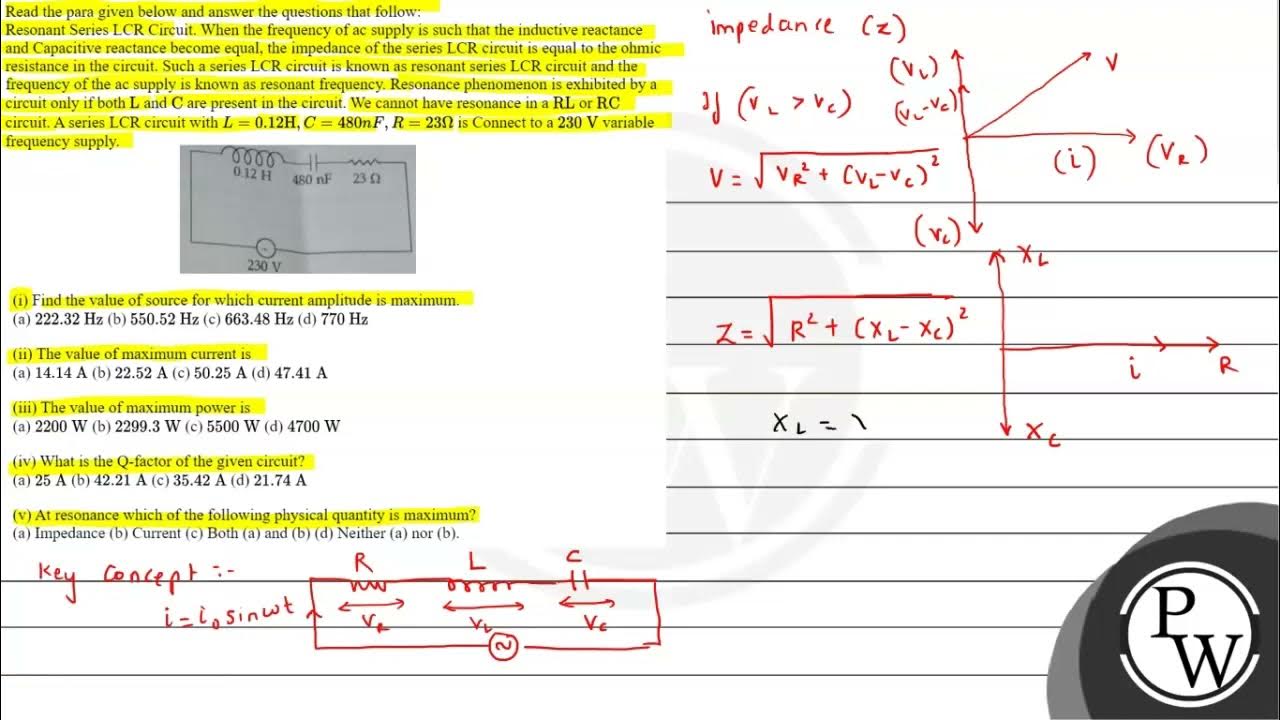 Read the para given below and answer the questions that follow:
Resonant Series LCR Circuit. When the frequency of ac supply is such that the inductive reactance
and Capacitive reactance become equal, the impedance of the series LCR circuit is equal to the ohmic
resistance in the circuit. Such a series LCR circuit is known as resonant series LCR circuit and the
frequency of the ac supply is known as resonant frequency. Resonance phenomenon is exhibited by a
circuit only if both L and C are present in the circuit. We cannot have resonance in a RL or RC
circuit. A series LCR circuit with L = 0.12H, C = 480nF, R = 23Ω is Connect to a 230 V variable
frequency supply.
0.12 H 480 nF 23 Ω
230 V
(i) Find the value of source for which current amplitude is maximum.
(a) 222.32 Hz (b) 550.52 Hz (c) 663.48 Hz (d) 770 Hz
(ii) The value of maximum current is
(a) 14.14 A (b) 22.52 A (c) 50.25 A (d) 47.41 A
(iii) The value of maximum power is
(a) 2200 W (b) 2299.3 W (c) 5500 W (d) 4700 W
(iv) What is the Q-factor of the given circuit?
(a) 25 A (b) 42.21 A (c) 35.42 A (d) 21.74 A
(v) At resonance which of the following physical quantity is maximum?
(a) Impedance (b) Current (c) Both (a) and (b) (d) Neither (a) nor (b).
Key concept :-
R L C
i = i₀ sinωt
V_R V_L V_C
impedance (z)
(V_L) V
If (V_L > V_C) (V_L-V_C)
(i) (V_R)
V = √(V_R² + (V_L-V_C)²)
(V_C)
X_L
Z = √(R² + (X_L - X_C)²)
i R
X_L =
X_C
PW